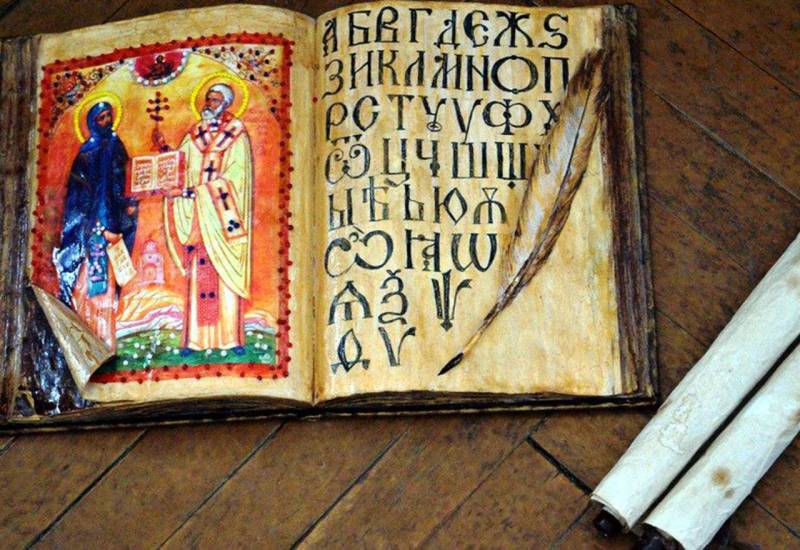 А Б В Г Д Е Ж Ѕ
З И К Л М Н О П
Р С Т У Ѵ Ф Х
Ѿ Ц Ч Ш Щ
Ы Ѣ Ь Ю Ѫ
Ѽ Ꙗ Ѡ
Ѧ Ѯ Ѱ
Ѳ Ѵ